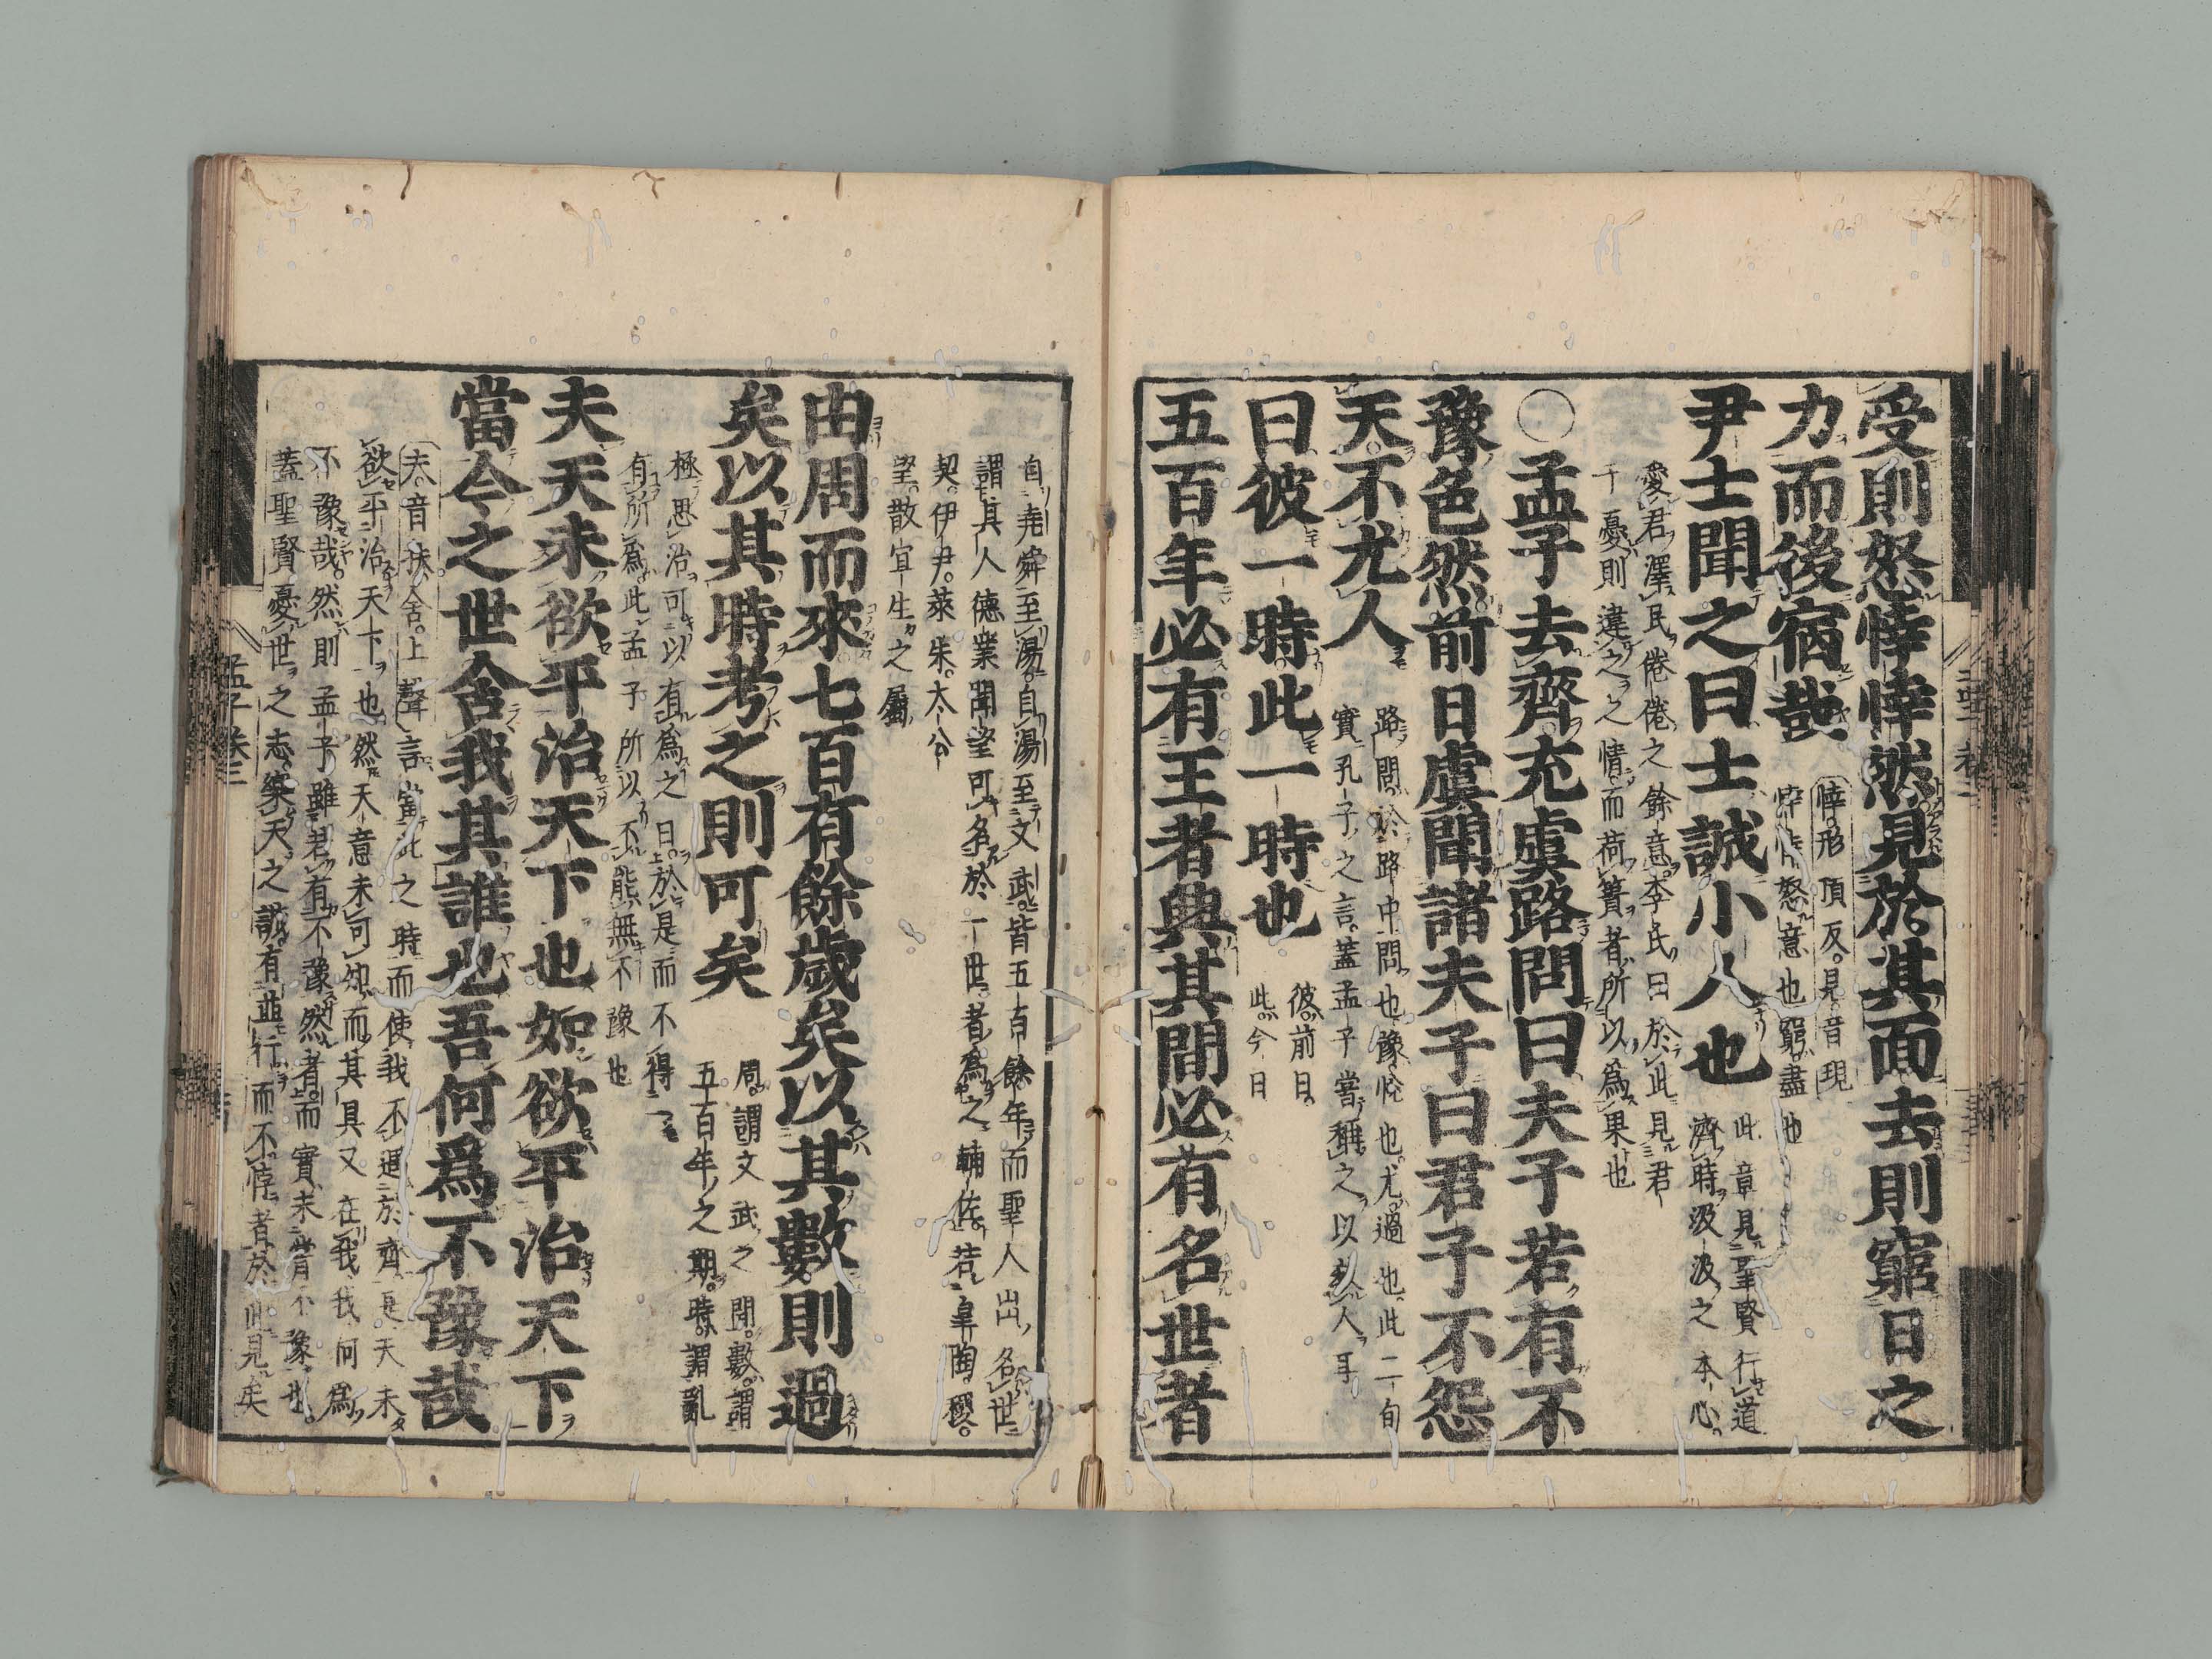 受則怒悻悻然見於其面去則窮日之
力而後宿哉
悻形頂反見音現
悻悻怒意也窮盡也
尹士聞之曰士誠小人也
此章見聖賢行道
濟時汲汲之本心
愛君澤民惓惓之餘意李氏曰於此見君
子憂則違之之情而荷蕢者所以為果也
○孟子去齊充虞路問曰夫子若有不
豫色然前日虞聞諸夫子曰君子不怨
天不尤人
路問於路中問也豫悅也尤過也此二句
實孔子之言蓋孟子嘗稱之以教人耳
曰彼一時此一時也
彼前日
此今日
五百年必有王者興其間必有名世者
自堯舜至湯自湯至文武皆五百餘年而聖人出名世
謂其人德業聞望可名於一世者為之輔佐若皐陶稷
契伊尹萊朱太公
望散宜生之屬
由周而來七百有餘歲矣以其數則過
矣以其時考之則可矣
周謂文武之間數謂
五百年之期時謂亂
極思治可以有為之日於是而不得一
有所為此孟子所以不能無不豫也
夫天未欲平治天下也如欲平治天下
當今之世舍我其誰也吾何爲不豫哉
夫音扶舍上聲言當此之時而使我不遇於齊是天未
欲平治天下也然天意未可知而其具又在我我何為
不豫哉然則孟子雖若有不豫然者而實未嘗不豫也
蓋聖賢憂世之志樂天之誠有並行而不悖者於此見矣
孟子卷二